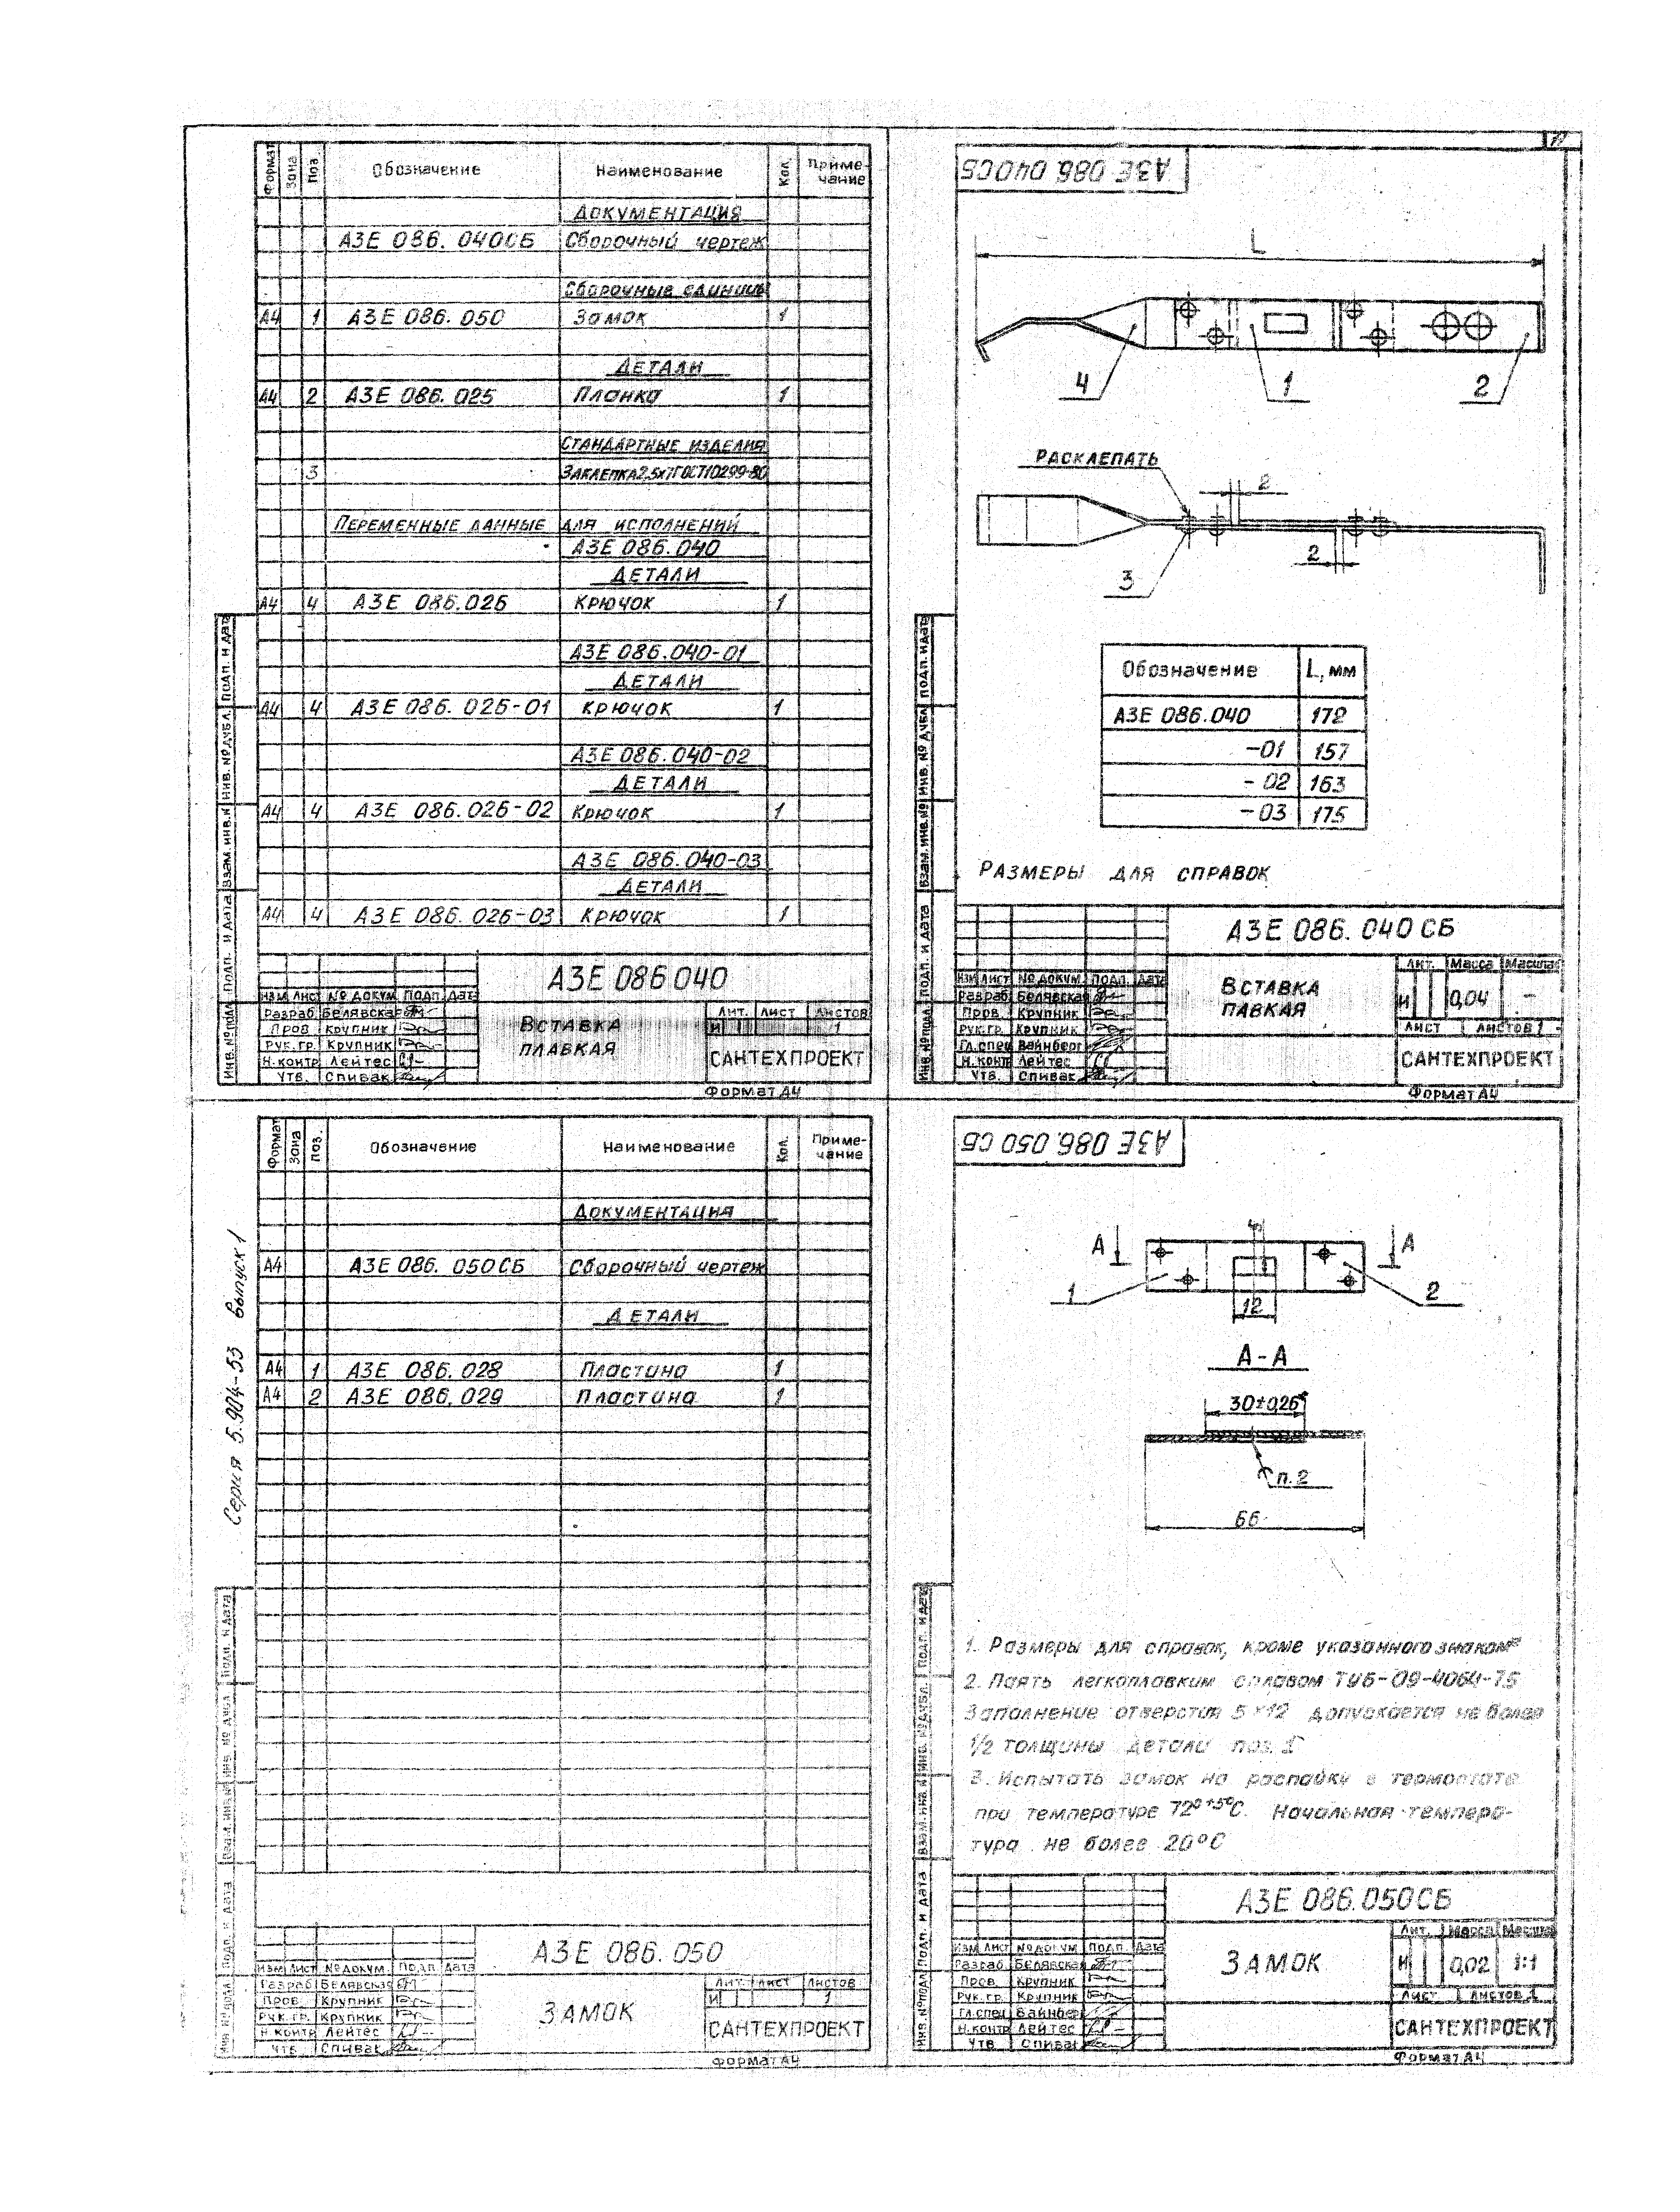 Формат Зона Поз. Обозначение Наименование Кол. Приме-чание
ДОКУМЕНТАЦИЯ
АЗЕ 086.040СБ Сборочный чертеж
Сборочные единицы
А4 1 АЗЕ 086.050 Замок 1
ДЕТАЛИ
А4 2 АЗЕ 086.025 Планка 1
СТАНДАРТНЫЕ ИЗДЕЛИЯ
3 ЗАКЛЕПКА 2,5х7 ГОСТ 10299-80
ПЕРЕМЕННЫЕ ДАННЫЕ ДЛЯ ИСПОЛНЕНИЙ
АЗЕ 086.040
ДЕТАЛИ
А4 4 АЗЕ 086.026 Крючок 1
АЗЕ 086.040-01
ДЕТАЛИ
А4 4 АЗЕ 086.026-01 Крючок 1
АЗЕ 086.040-02
ДЕТАЛИ
А4 4 АЗЕ 086.026-02 Крючок 1
АЗЕ 086.040-03
ДЕТАЛИ
А4 4 АЗЕ 086.026-03 Крючок 1
Инв. № подл. Подп. и дата Взам. инв. № Инв. № дубл. Подп. и дата
АЗЕ 086 040
Изм Лист № докум. Подп. Дата
Разраб. Белявская
Пров. Крупник
Рук. гр. Крупник
Н. контр. Лейтес
Утв. Спивак
ВСТАВКА
ПЛАВКАЯ
Лит. Лист Листов
И 1
САНТЕХПРОЕКТ
Формат А4
АЗЕ 086 040СБ
L
4 1 2
РАСКЛЕПАТЬ
2
2
3
Обозначение L, мм
АЗЕ 086.040 172
-01 157
-02 163
-03 175
РАЗМЕРЫ ДЛЯ СПРАВОК
Инв. № подл. Подп. и дата Взам. инв. № Инв. № дубл. Подп. и дата
АЗЕ 086.040 СБ
Изм Лист № докум. Подп. Дата
Разраб. Белявская
Пров. Крупник
Рук. гр. Крупник
Гл. спец. Вайнберг
Н. контр. Лейтес
Утв. Спивак
ВСТАВКА
ПАВКАЯ
Лит. Масса Масштаб
И 0,04 -
Лист Листов 1
САНТЕХПРОЕКТ
Формат А4
Серия 5.904-53 выпуск 1
Формат Зона Поз. Обозначение Наименование Кол. Приме-чание
ДОКУМЕНТАЦИЯ
А4 АЗЕ 086.050СБ Сборочный чертеж
ДЕТАЛИ
А4 1 АЗЕ 086.028 Пластина 1
А4 2 АЗЕ 086.029 Пластина 1
Инв. № подл. Подп. и дата Взам. инв. № Инв. № дубл. Подп. и дата
АЗЕ 086.050
Изм Лист № докум. Подп. Дата
Разраб. Белявская
Пров. Крупник
Рук. гр. Крупник
Н. контр. Лейтес
Утв. Спивак
ЗАМОК
Лит. Лист Листов
И 1
САНТЕХПРОЕКТ
Формат А4
АЗЕ 086.050 СБ
А А
5
1 2
12
А-А
30±0,26*
п. 2
66
1. Размеры для справок, кроме указанного знаком*
2. Паять легкоплавким сплавом ТУ6-09-4064-75
Заполнение отверстия 5×12 допускается не более
1/2 толщины детали поз. 1
3. Испытать замок на распайку в термостате
при температуре 72°+5°С. Начальная темпера-
тура не более 20°С
Инв. № подл. Подп. и дата Взам. инв. № Инв. № дубл. Подп. и дата
АЗЕ 086.050СБ
Изм Лист № докум. Подп. Дата
Разраб. Белявская
Пров. Крупник
Рук. гр. Крупник
Гл. спец. Вайнберг
Н. контр. Лейтес
Утв. Спивак
ЗАМОК
Лит. Масса Масштаб
И 0,02 1:1
Лист Листов 1
САНТЕХПРОЕКТ
Формат А4